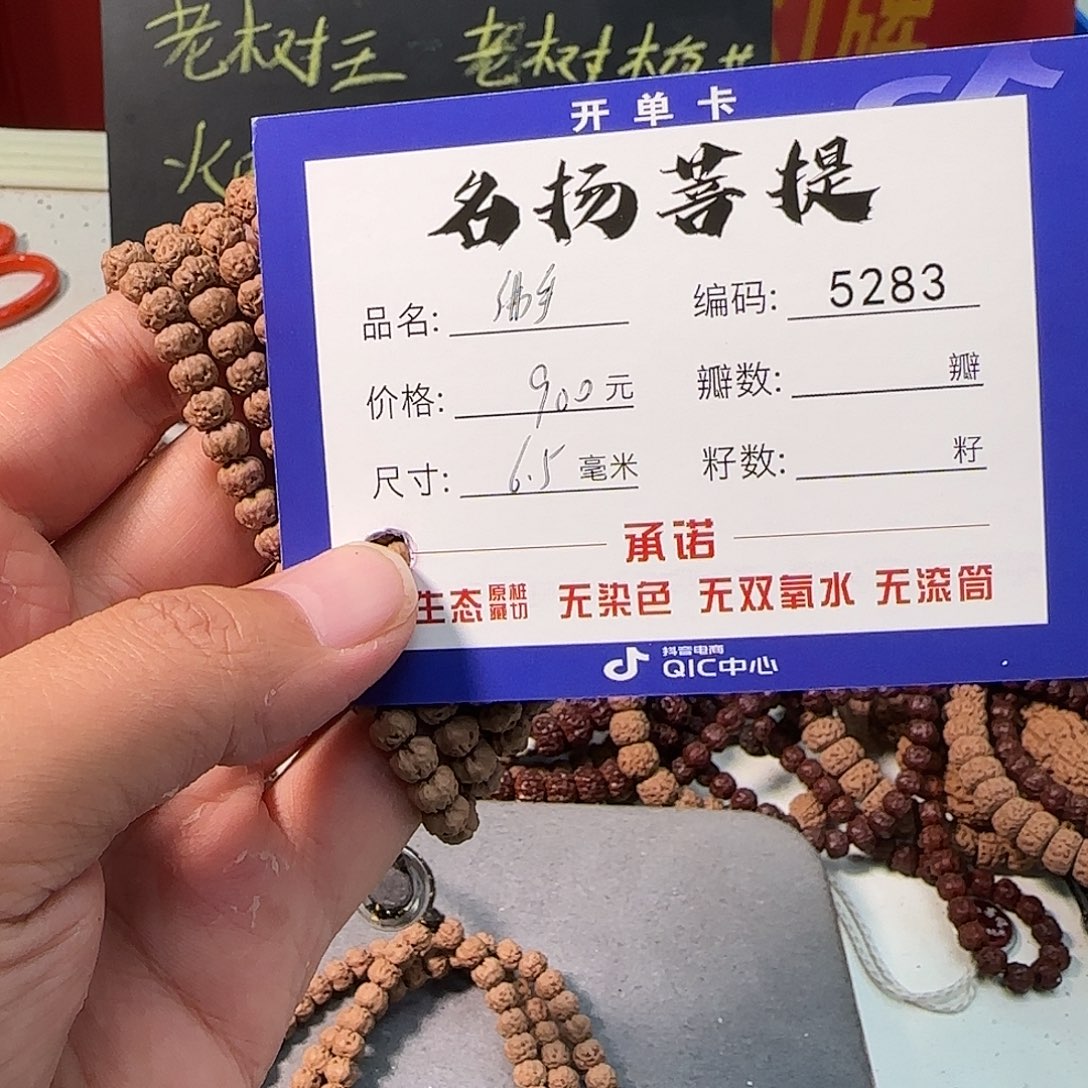 老树王 老树桩
火
开单卡
名扬菩提
品名: 佛手 编码: 5283
价格: 900元 瓣数: 瓣
尺寸: 6.5毫米 籽数: 籽
承诺
生态 原桩藏切 无染色 无双氧水 无滚筒
抖音电商
QIC中心